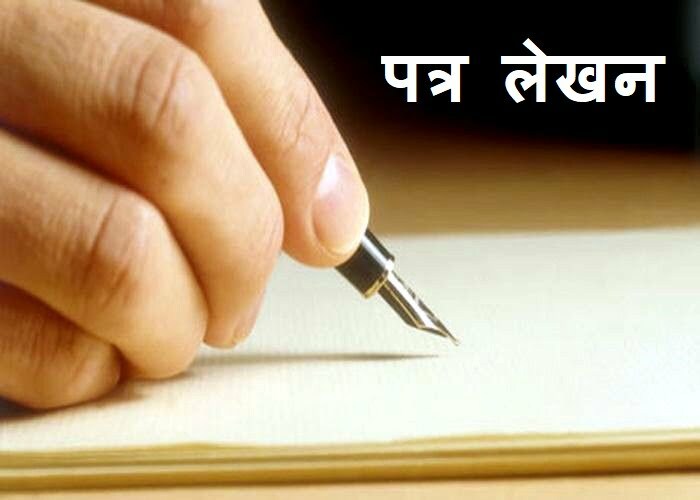 पत्र लेखन